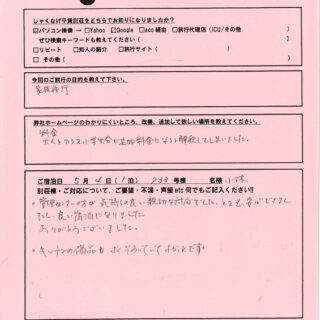 しゃくなげ平貸別荘をどちらでお知りになりましたか?
☑パソコン検索 → □Yahoo ☑Google □aco経由 □旅行代理店(ICU/その他 )
ぜひ検索キーワードも教えてください( )
□リピート □知人の紹介 □旅行サイト( )
□その他( )
今回のご旅行の目的を教えて下さい。
家族旅行
弊社ホームページのわかりにくいところ、改善、追加して欲しい場所を教えてください。
料金
大人2プラス小学生分が追加料金となると解釈してしまいました。
ご宿泊日 5月4日(1泊) 233号棟 名様 小林
別荘棟・ご対応について、ご要望・不満・声援 etc 何でもご記入ください!!
・管理センターの方が気持ちの良い親切な対応でした。とても安心できまし
たし、良い宿泊になりました。
ありがとうございました。
・キッチンの備品もよくそろっていてよかったです!